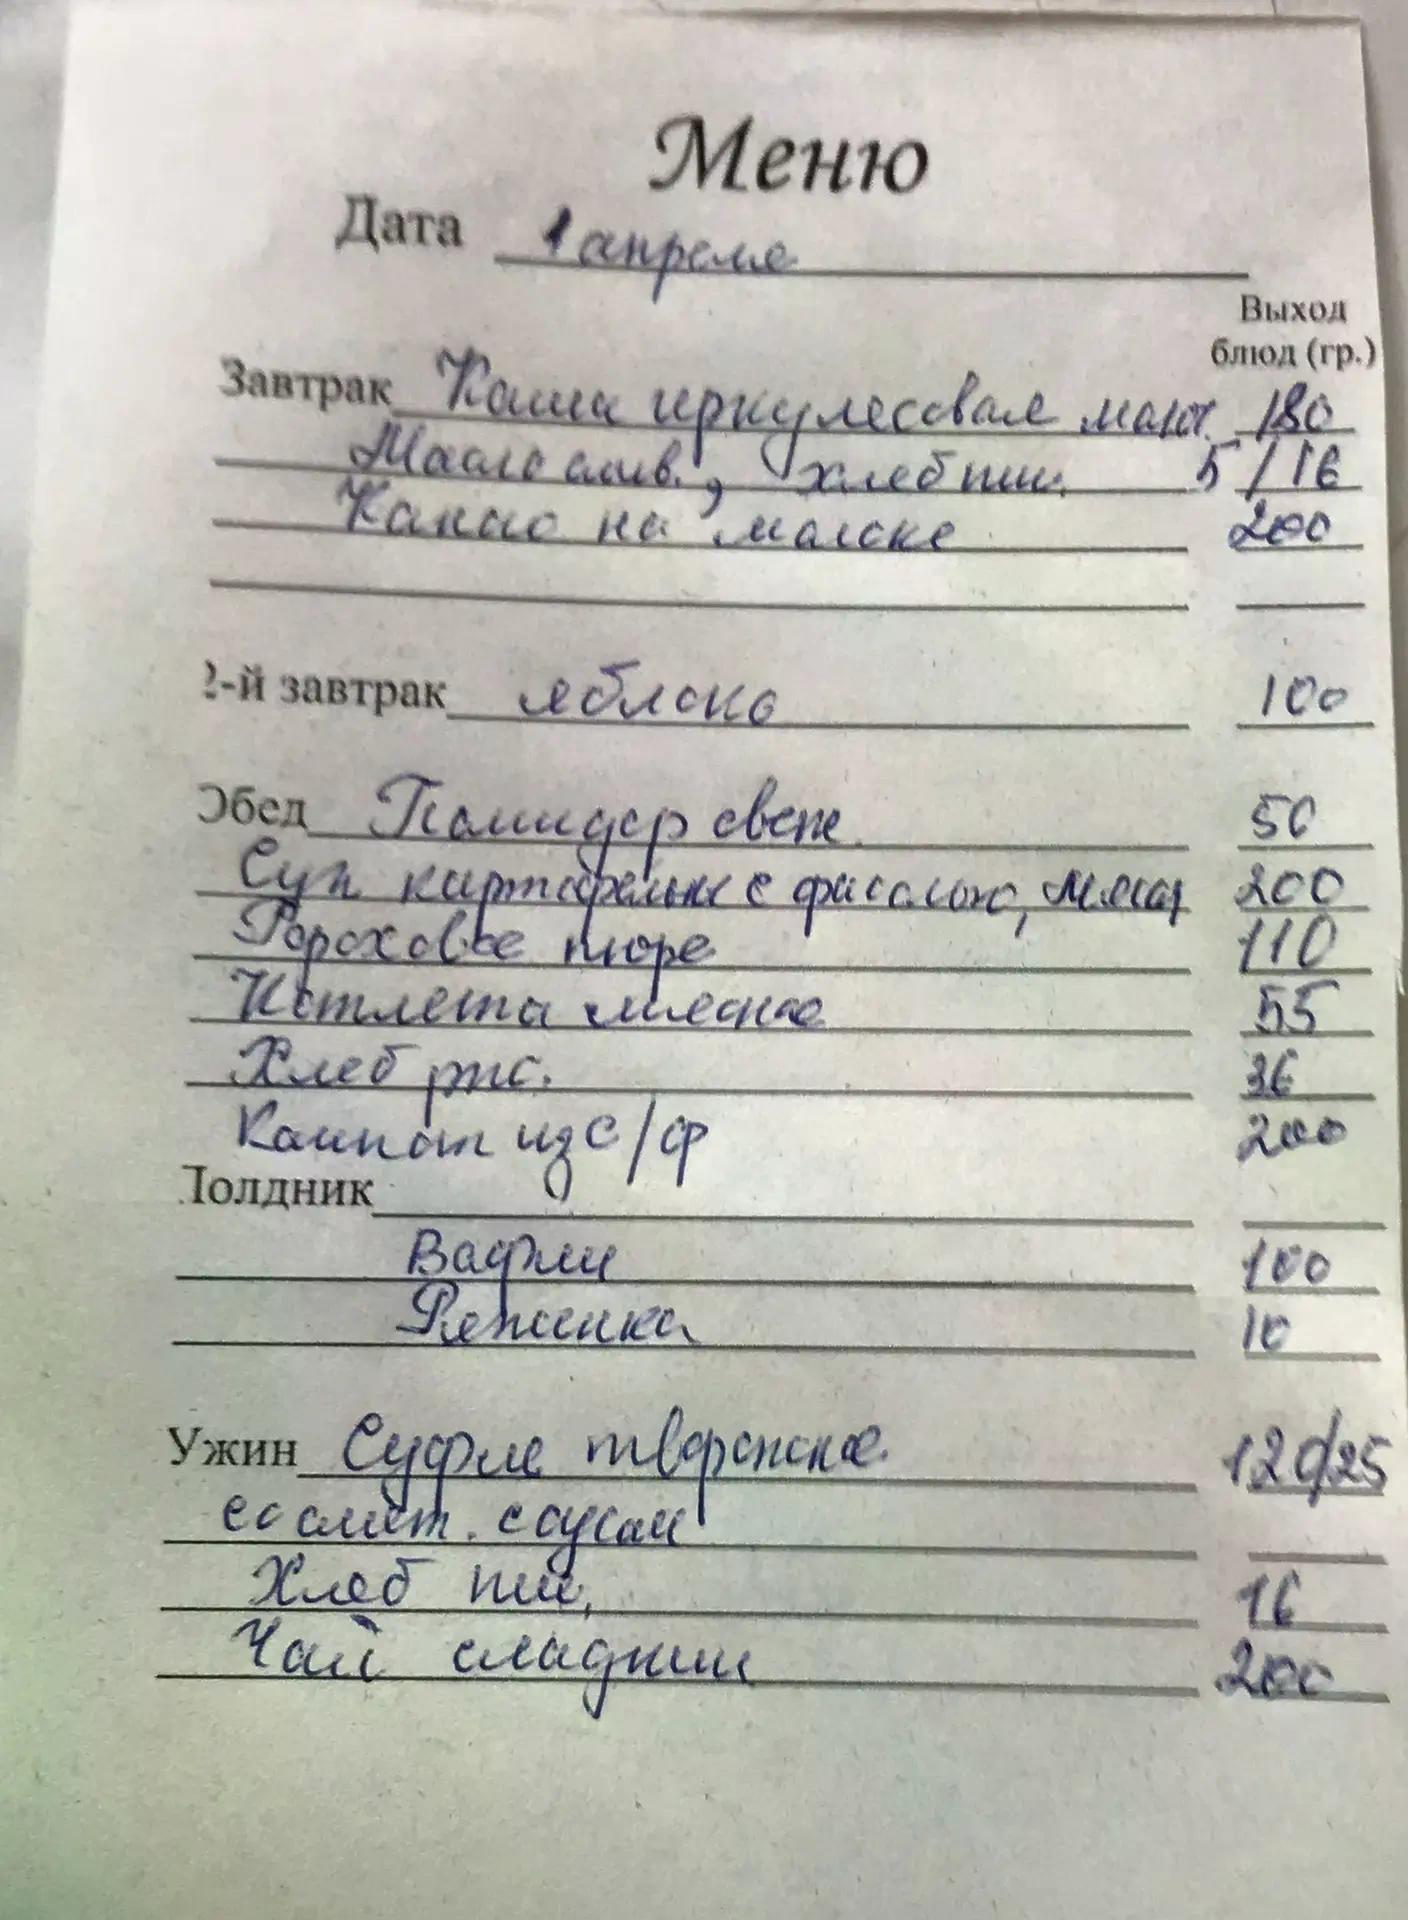 Меню
Дата 1 апреля
Выход
блюд (гр.)
Завтрак Каша геркулесовая молоч. 180
Масло слив., хлеб пш. 5/16
Какао на молоке 200
2-й завтрак яблоко 100
Обед Помидор свеж. 50
Суп картофельн с фасолью, мясом 200
Гороховое пюре 110
Котлета мясная 55
Хлеб рж. 36
Компот из с/ф 200
Полдник
Вафли 100
Ряженка 10
Ужин Суфле творожное 120/25
со смет. соусом
Хлеб пш, 16
Чай сладкий 200